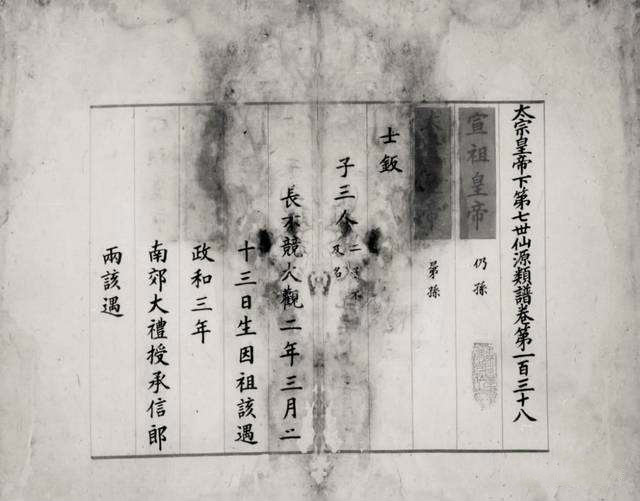 太宗皇帝下第七世仙源類譜卷第一百三十八
宣祖皇帝 仍孫
太 帝 晜孫
士鈑
子三人 二子不
及名
長不競大觀二年三月二
十三日生因祖該遇
政和三年
南郊大禮授承信郎
兩該遇